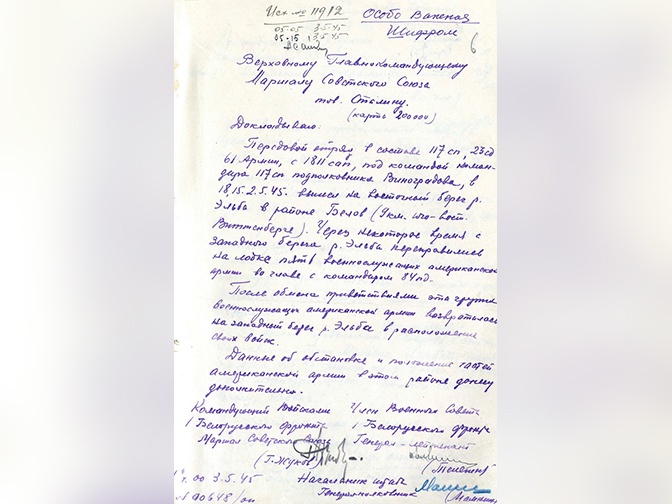 Исх. № 11912
Особо Важная
Шифром
05-05 3.5.45
05-15 3.5.45
6
Верховному Главнокомандующему
Маршалу Советского Союза
тов. Сталину.
(карта 200000)
Докладываю:
Передовой отряд в составе 117 сп, 23 сд
61 Армии, с 1811 сап, под командой коман-
дира 117 сп подполковника Виноградова, в
18.15. 2.5.45. вышел на восточный берег р.
Эльба в районе Белов (9 км. юго-вост.
Виттенберге). Через некоторое время с
западного берега р. Эльба переправились
на лодке пять военнослужащих американской
армии во главе с командиром 84 пд.
После обмена приветствиями эта группа
военнослужащих американской армии возвратилась
на западный берег р. Эльба в расположение
своих войск.
Данные об обстановке и положение частей
американской армии в этом районе донесу
дополнительно.
Командующий Войсками Член Военного Совета
1 Белорусского фронта 1 Белорусского фронта
Маршал Советского Союза Генерал-лейтенант
(Г. Жуков) (Телегин)
3.5.45 Начальник штаба
№ 00648/оп Генерал-полковник (Малинин)